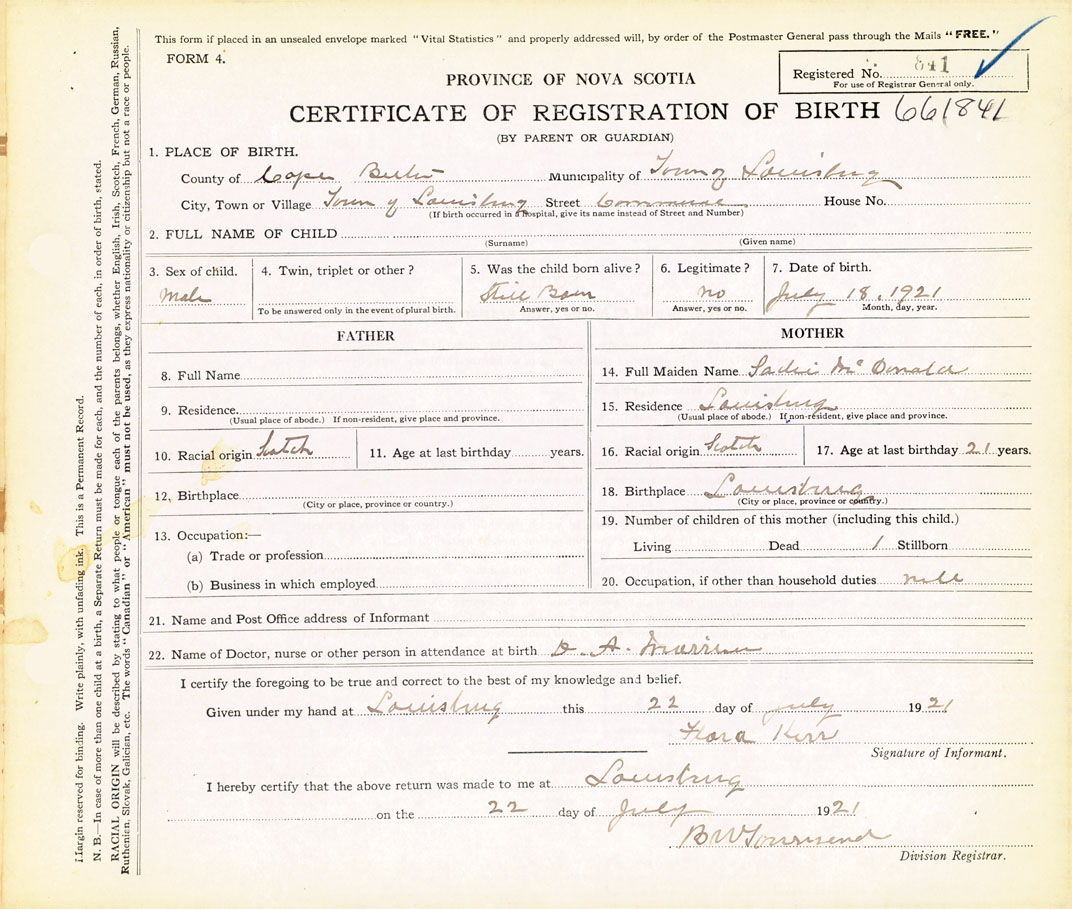 This form if placed in an unsealed envelope marked "Vital Statistics" and properly addressed will, by order of the Postmaster General pass through the Mails "FREE."
FORM 4.
Registered No. 841
For use of Registrar General only.
PROVINCE OF NOVA SCOTIA
CERTIFICATE OF REGISTRATION OF BIRTH 661841
(BY PARENT OR GUARDIAN)
1. PLACE OF BIRTH.
County of Cape Breton Municipality of Town of Louisburg
City, Town or Village Town of Louisburg Street Commercial House No.
(If birth occurred in a hospital, give its name instead of Street and Number)
2. FULL NAME OF CHILD
(Surname) (Given name)
3. Sex of child. 4. Twin, triplet or other? 5. Was the child born alive? 6. Legitimate? 7. Date of birth.
Male Still Born no July 18, 1921
To be answered only in the event of plural birth. Answer, yes or no. Answer, yes or no. Month, day, year.
FATHER
8. Full Name
9. Residence.
(Usual place of abode.) If non-resident, give place and province.
10. Racial origin Scotch 11. Age at last birthday years.
12. Birthplace
(City or place, province or country.)
13. Occupation:—
(a) Trade or profession
(b) Business in which employed
MOTHER
14. Full Maiden Name Sadie McDonald
15. Residence Louisburg
(Usual place of abode.) If non-resident, give place and province.
16. Racial origin Scotch 17. Age at last birthday 21 years.
18. Birthplace Louisburg
(City or place, province or country.)
19. Number of children of this mother (including this child.)
Living Dead 1 Stillborn
20. Occupation, if other than household duties
21. Name and Post Office address of Informant
22. Name of Doctor, nurse or other person in attendance at birth D. A. Morrison
I certify the foregoing to be true and correct to the best of my knowledge and belief.
Given under my hand at Louisburg this 22 day of July 1921
Flora Kerr
Signature of Informant.
I hereby certify that the above return was made to me at Louisburg
on the 22 day of July 1921
B W Townsend
Division Registrar.
Margin reserved for binding. Write plainly, with unfading ink. This is a Permanent Record.
N. B.—In case of more than one child at a birth, a Separate Return must be made for each, and the number of each, in order of birth, stated.
RACIAL ORIGIN will be described by stating to what people or tongue each of the parents belongs, whether English, Irish, Scotch, French, German, Russian,
Ruthenian, Slovak, Galician, etc. The words "Canadian" or "American" must not be used, as they express nationality or citizenship but not a race or people.